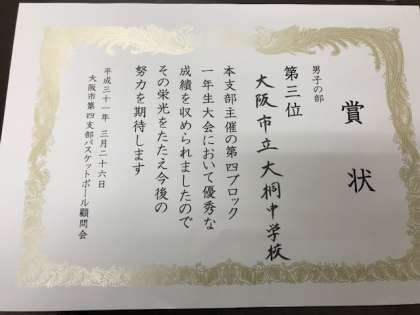 賞状
男子の部
第三位
大阪市立大桐中学校
本支部主催の第四ブロック
一年生大会において優秀な
成績を収められましたので
その栄光をたたえ今後の
努力を期待します
平成三十一年 三月二十六日
大阪市第四支部バスケットボール顧問会